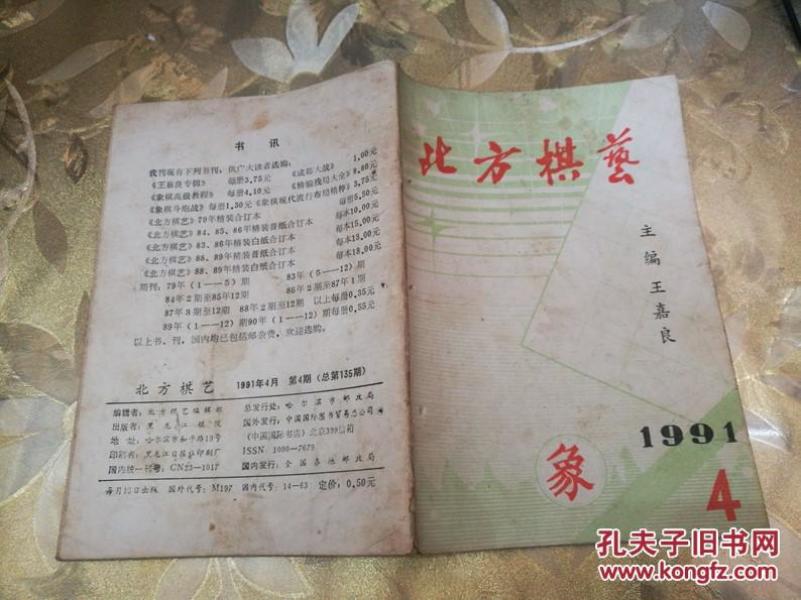 书 讯
我刊现有下列书刊,供广大读者选购:
《王嘉良专辑》 每册3.75元 《成都大战》 1.00元
《象棋高级教程》 每册4.10元 《精编残局大全》8.80元
《象棋斗炮战》每册1.50元《象棋现代流行布局精粹》3.75元
《北方棋艺》79年精装合订本 每册5.50元
《北方棋艺》84、85、86年精装普纸合订本 每本10.00元
《北方棋艺》83、86年精装白纸合订本 每本15.00元
《北方棋艺》88、89年精装普纸合订本 每本13.00元
《北方棋艺》88、89年精装白纸合订本 每本18.00元
期刊:79年(1——5)期 83年(5——12)期
84年2期至85年12期 86年2期至87年1期
87年8期至12期 88年2期至12期 以上每册0.35元
89年(1——12)期90年(1——12)期每册0.55元
以上书、刊,国内均已包括邮杂费,欢迎选购。
北方棋艺 1991年4月 第4期(总第135期)
编辑者:北方棋艺编辑部
出版者:黑龙江棋院
地址:哈尔滨市和平路19号
印刷者:黑龙江日报社印刷厂
国内统一刊号:CN23-1017
总发行处:哈尔滨市邮政局
国外发行:中国国际图书贸易总公司
(中国国际书店)北京399信箱
ISSN 1000-7679
国内发行:全国各地邮政局
每月10日出版 国外代号:M197 国内代号:14-63 定价:0.50元
北方棋藝
主编王嘉良
1991
象
4
孔夫子旧书网
www.kongfz.com